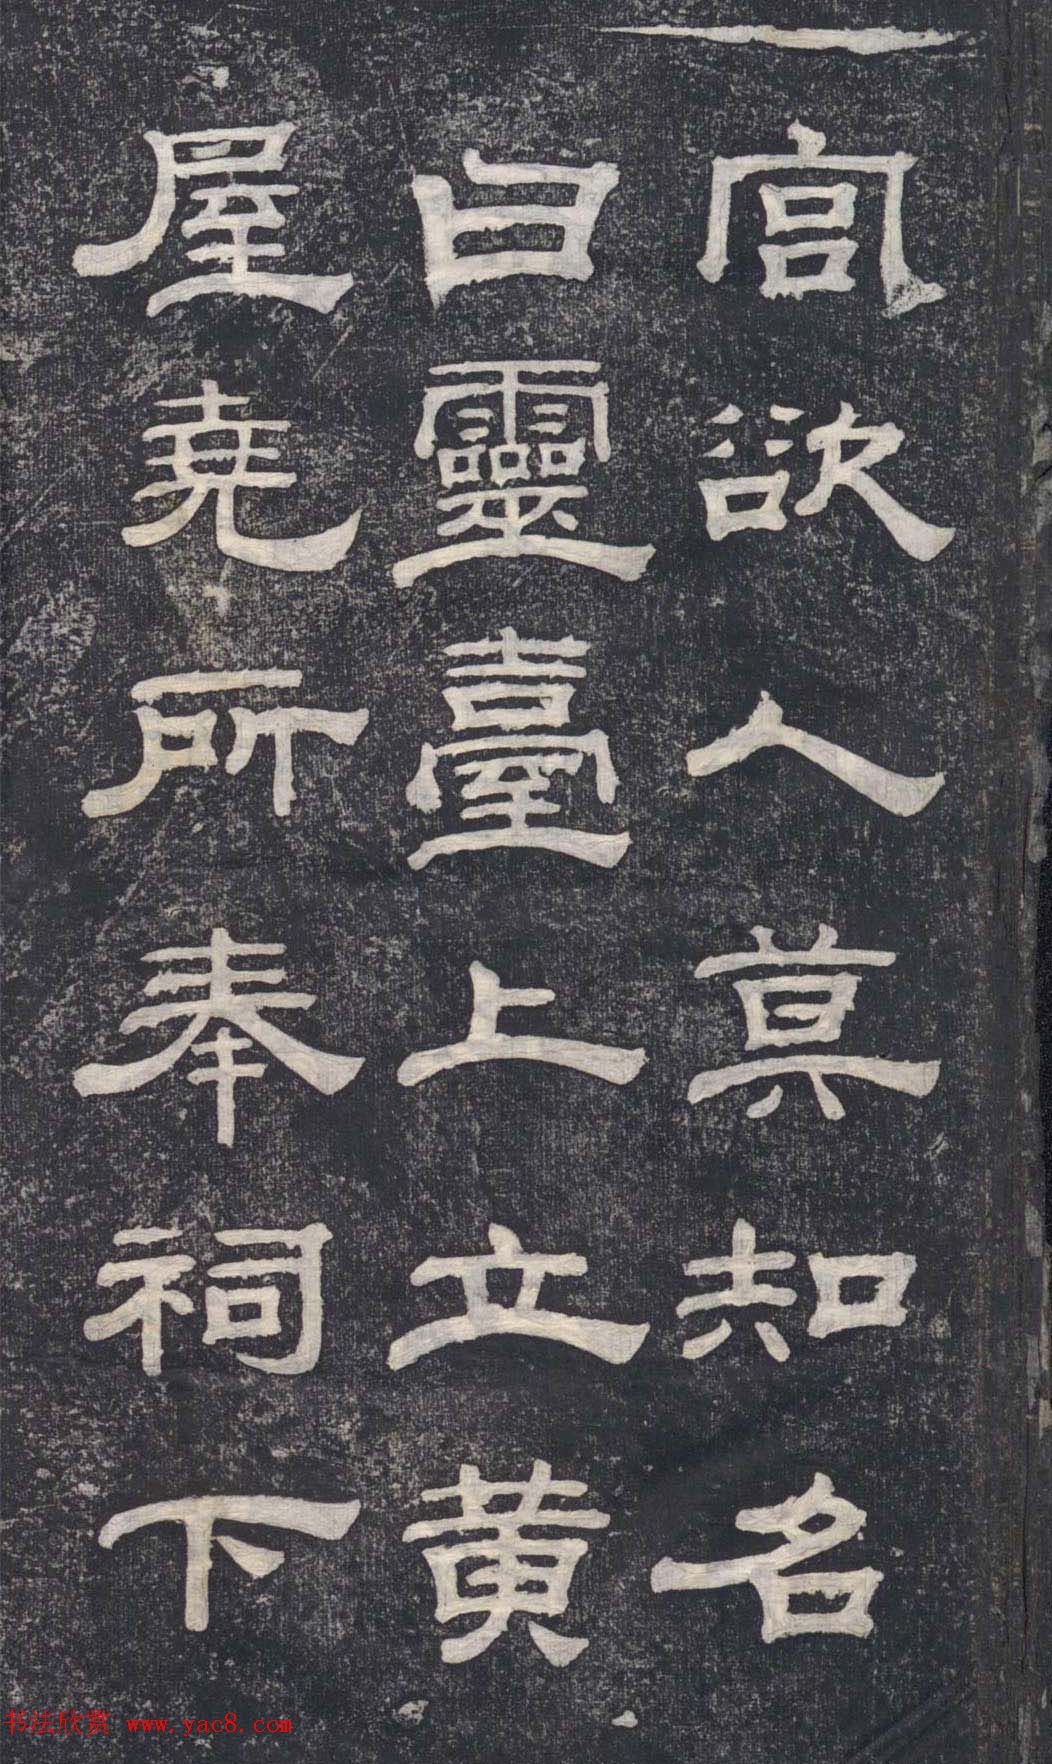 宫欲人莫知名
曰靈臺上立黄
屋堯所奉祠下
书法欣赏 www.yac8.com